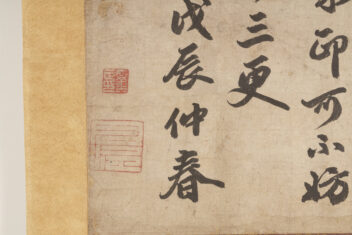 印可不妨
三更
戊辰仲春